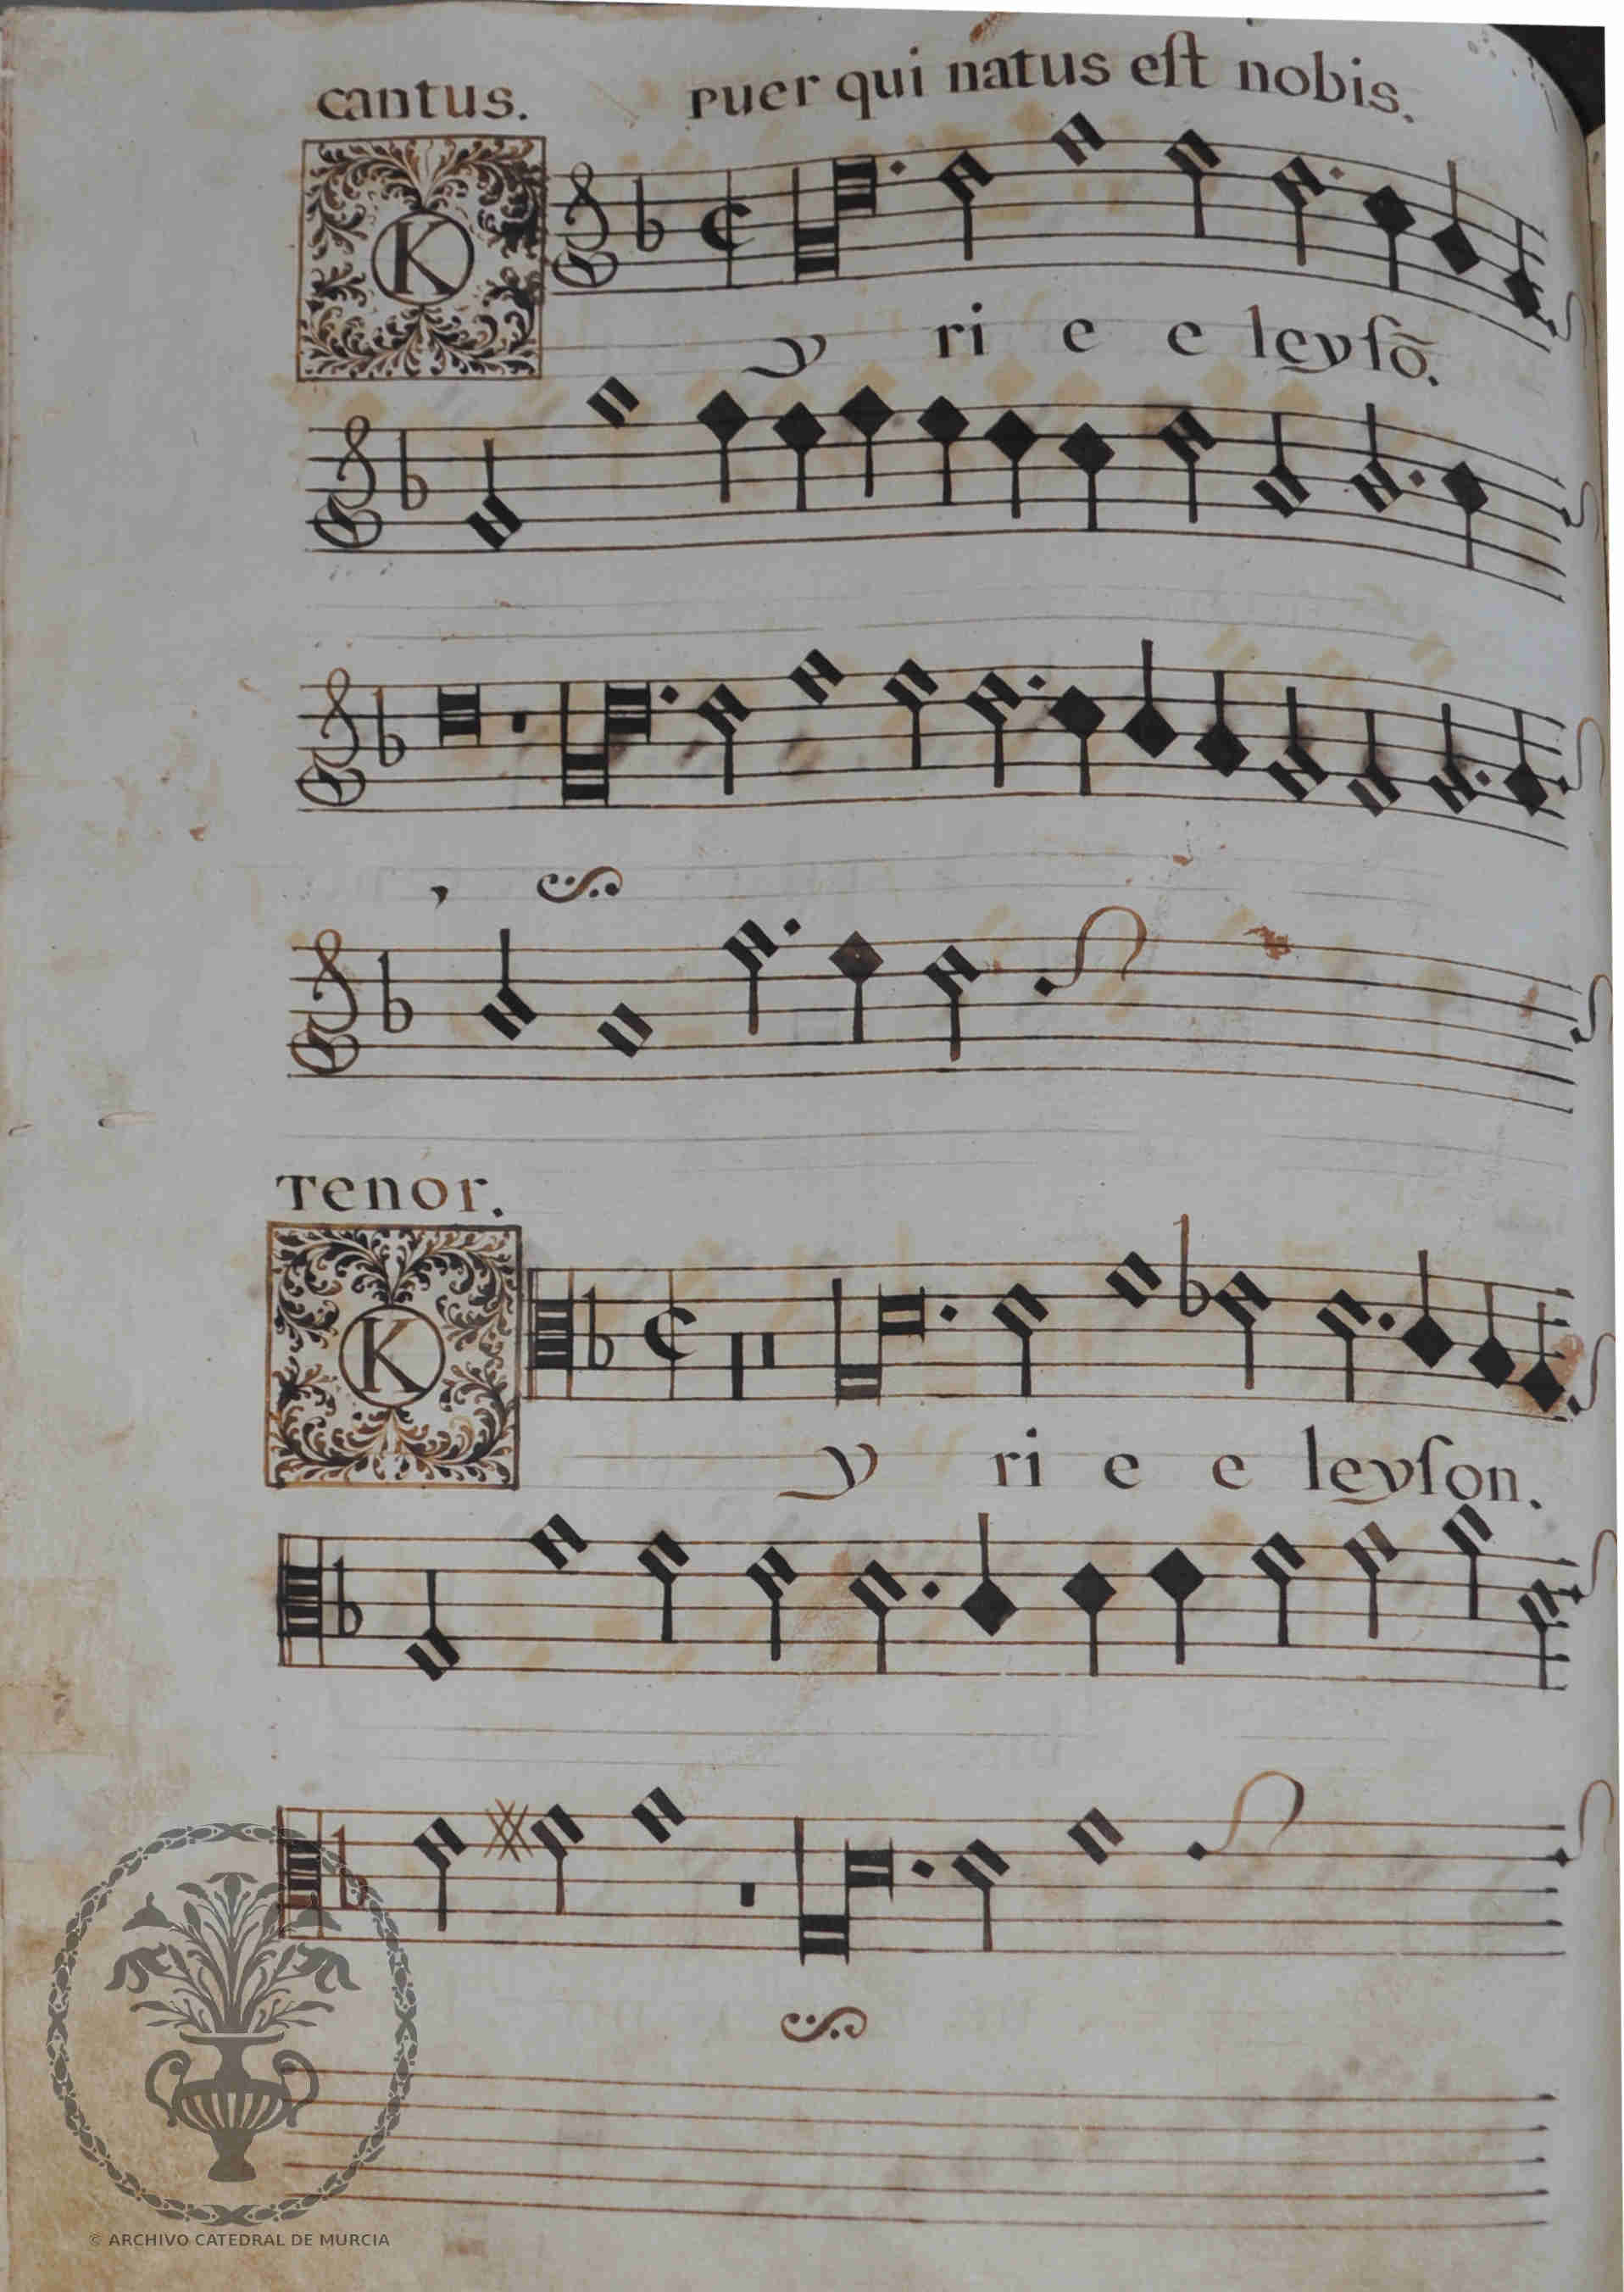 cantus. puer qui natus est nobis.
K
y ri e e leysõ.
Tenor.
K
y ri e e leyson.
© ARCHIVO CATEDRAL DE MURCIA